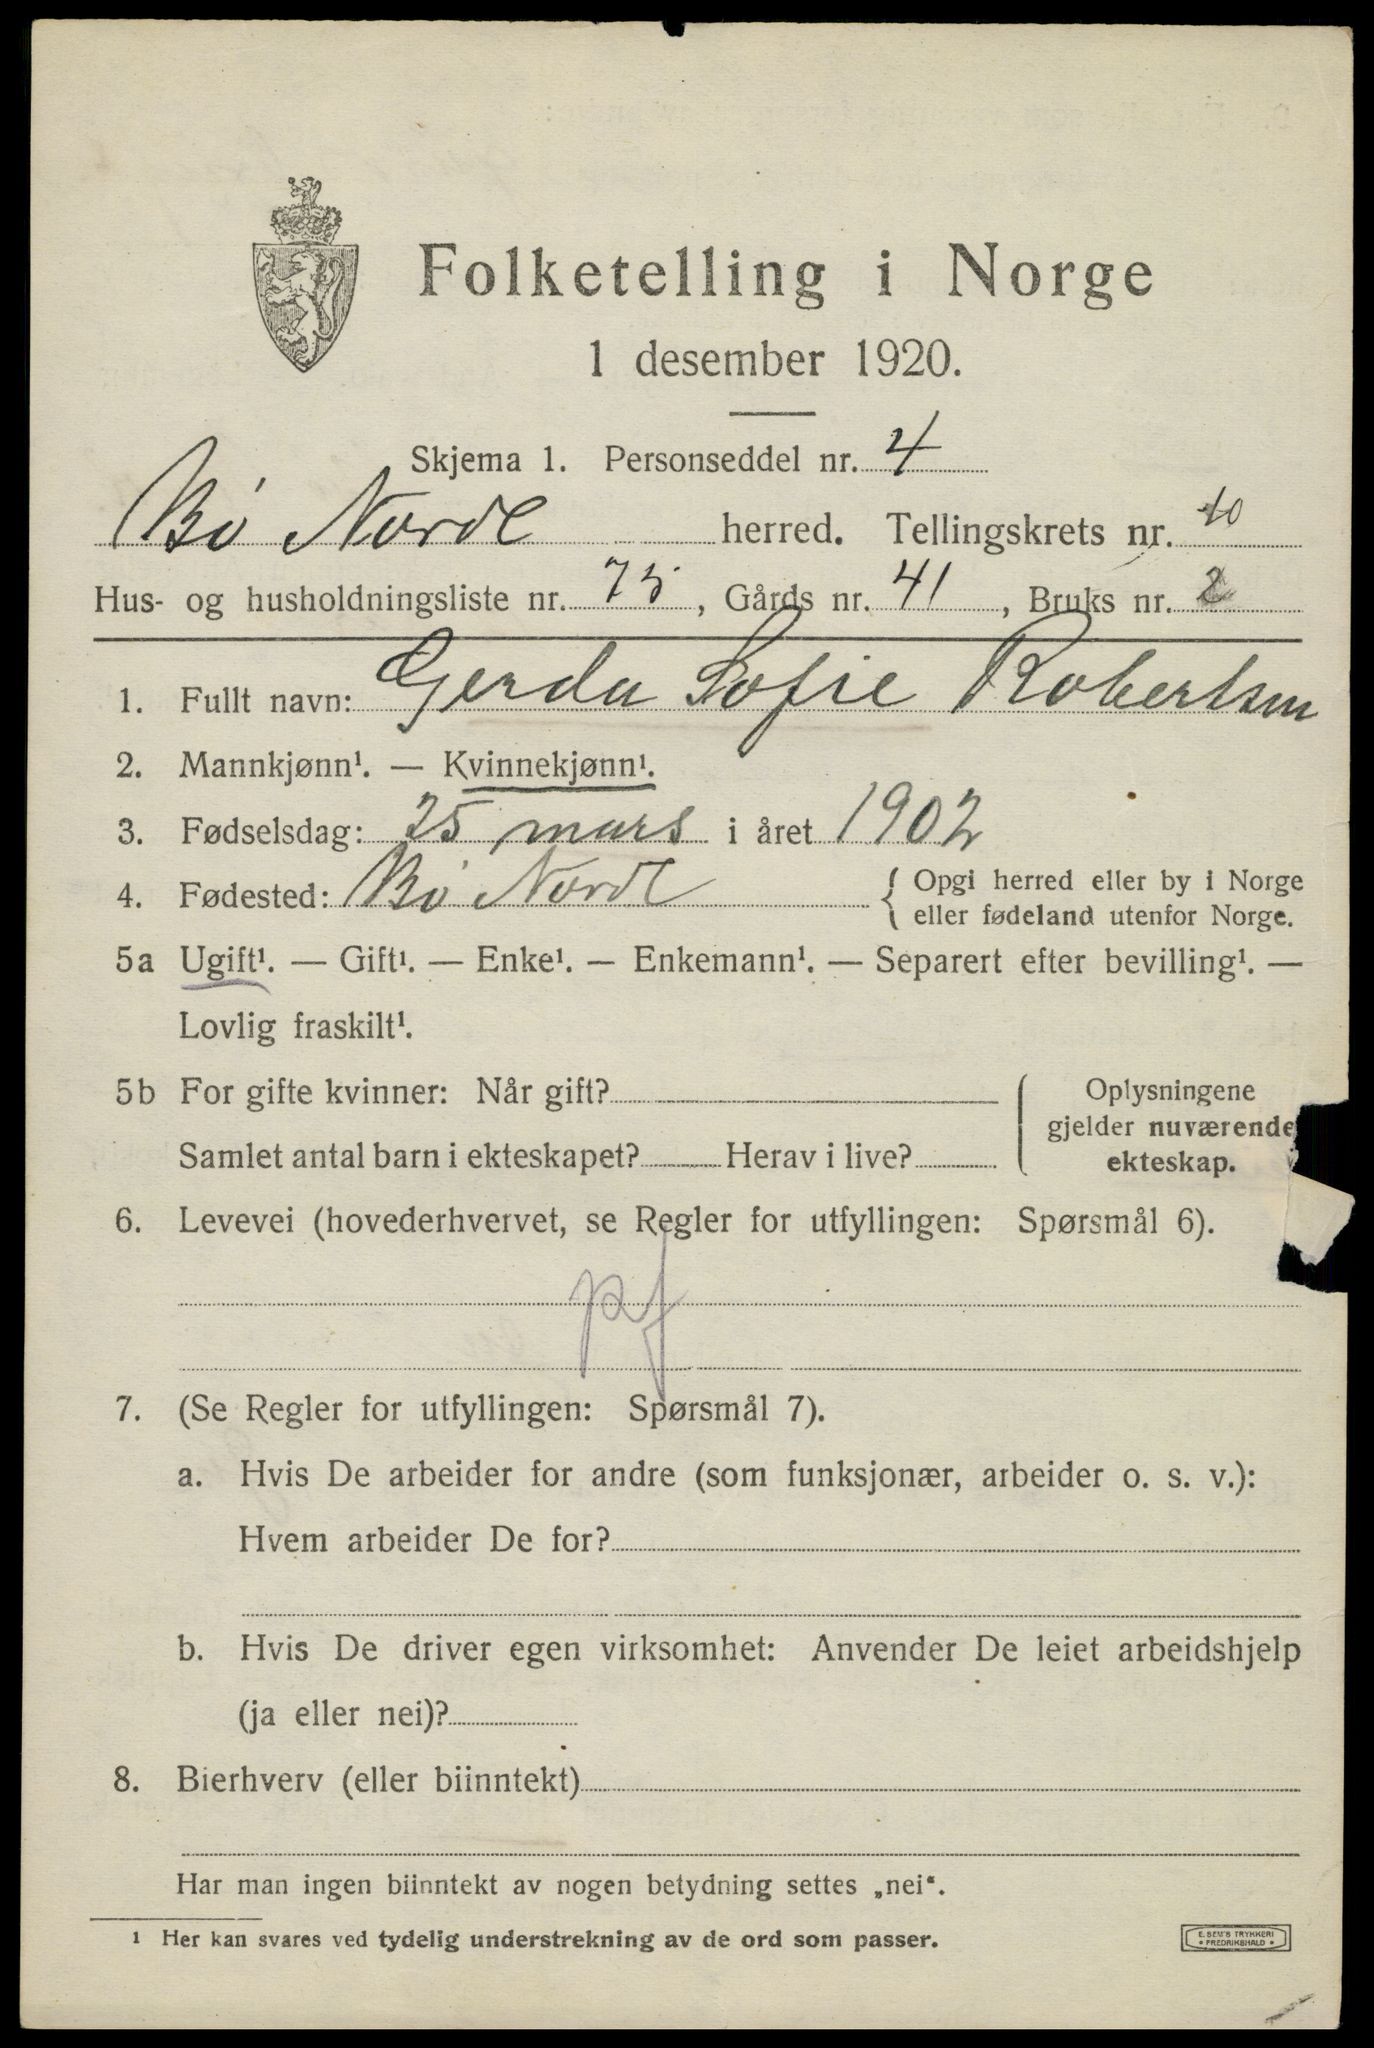 Folketelling i Norge
1 desember 1920.
Skjema 1. Personseddel nr. 4
Bø Nordl herred. Tellingskrets nr. 10
Hus- og husholdningsliste nr. 75, Gårds nr. 41, Bruks nr. 2
1. Fullt navn: Gerda Sofie Robertsen
2. Mannkjønn¹. — Kvinnekjønn¹.
3. Fødselsdag: 25 mars i året 1902
4. Fødested: Bø Nordl { Opgi herred eller by i Norge
eller fødeland utenfor Norge.
5a Ugift¹. — Gift¹. — Enke¹. — Enkemann¹. — Separert efter bevilling¹. —
Lovlig fraskilt¹.
5b For gifte kvinner: Når gift? Oplysningene
gjelder nuværende
Samlet antal barn i ekteskapet? Herav i live? ekteskap.
6. Levevei (hovederhvervet, se Regler for utfyllingen: Spørsmål 6).
7. (Se Regler for utfyllingen: Spørsmål 7).
a. Hvis De arbeider for andre (som funksjonær, arbeider o. s. v.):
Hvem arbeider De for?
b. Hvis De driver egen virksomhet: Anvender De leiet arbeidshjelp
(ja eller nei)?
8. Bierhverv (eller biinntekt)
Har man ingen biinntekt av nogen betydning settes „nei“.
1 Her kan svares ved tydelig understrekning av de ord som passer.
E. SEM'S TRYKKERI
• FREDRIKSHALD •